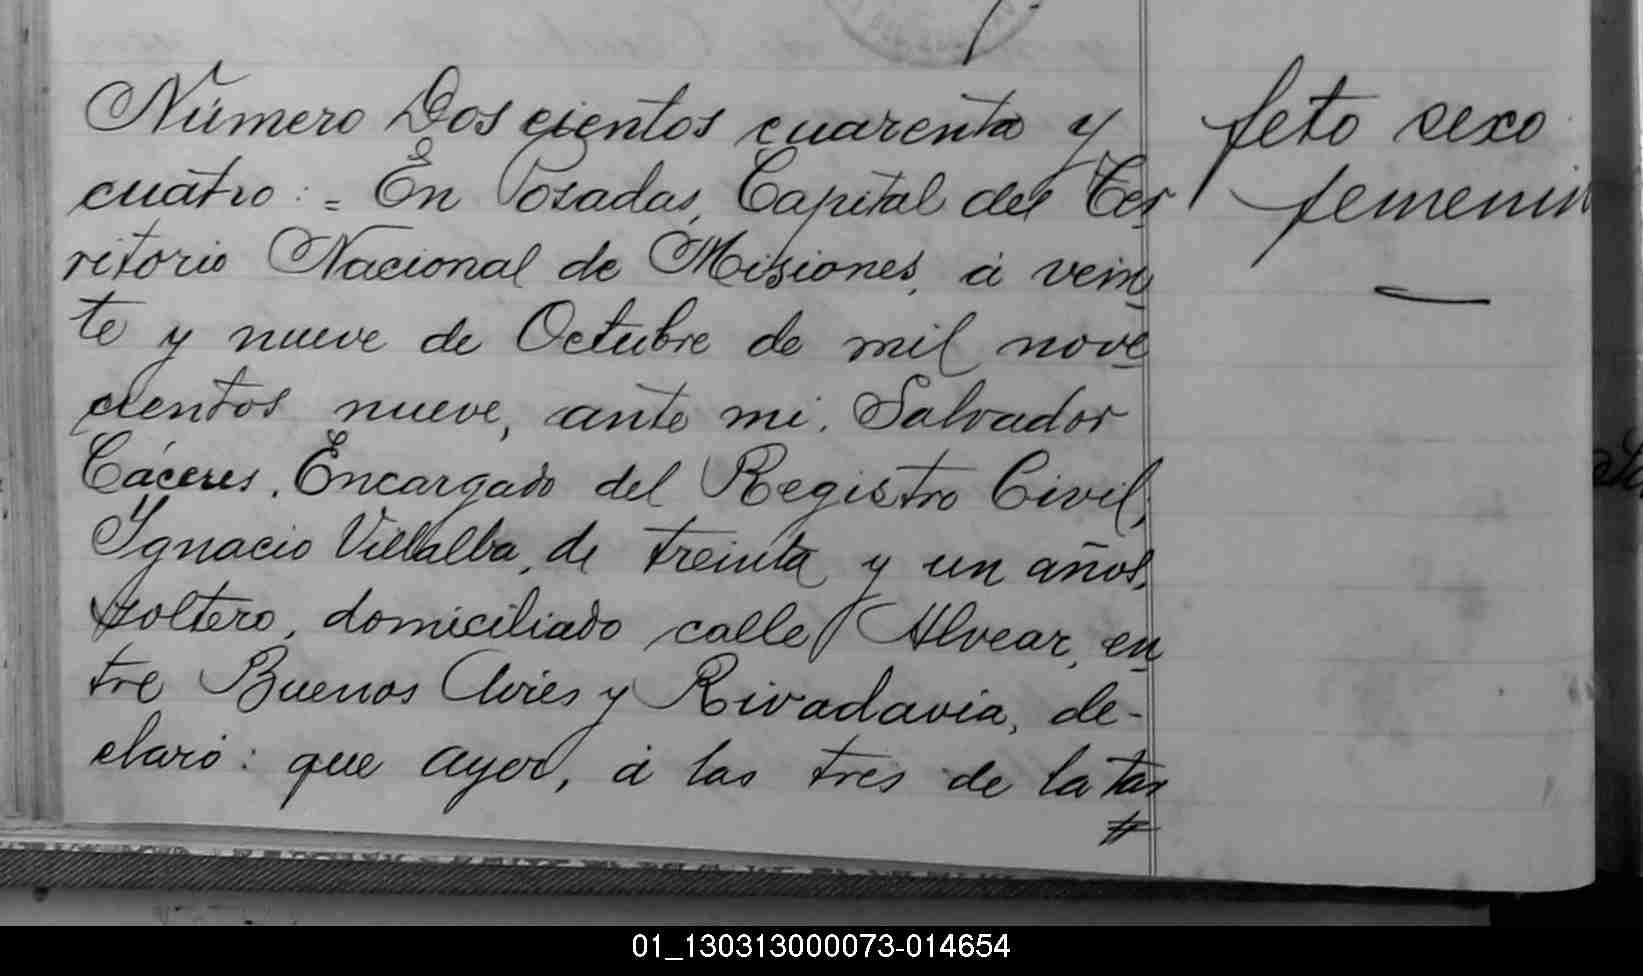 Número Dos cientos cuarenta y
cuatro: = En Posadas, Capital del Ter
ritorio Nacional de Misiones, á vein
te y nueve de Octubre de mil nove
cientos nueve, ante mi, Salvador
Cáceres, Encargado del Registro Civil,
Ygnacio Villalba, de treinta y un años,
soltero, domiciliado calle Alvear, en
tre Buenos Aires y Rivadavia, de-
claró: que ayer, á las tres de la tar
feto sexo
femenin
01_130313000073-014654